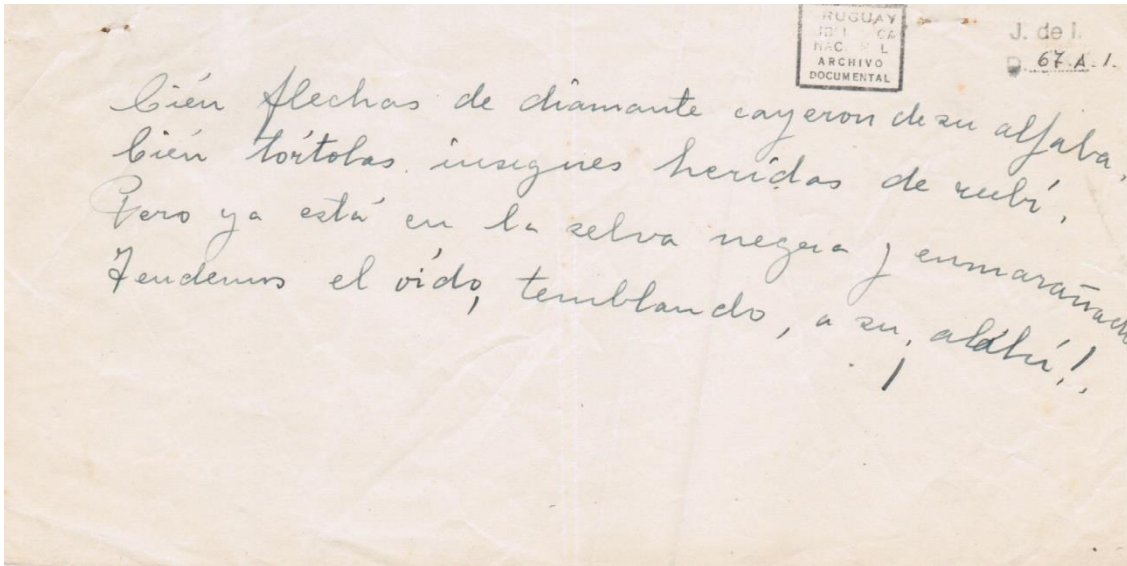 RUGUAY
NAC L
ARCHIVO
DOCUMENTAL
J. de I.
D. 67.A.1.
Cién flechas de diamante cayeron de su aljaba,
Cién tórtolas insignes heridas de rubí.
Pero ya está en la selva negra y enmarañada
Tendemos el oído, temblando, a su ¡alalú!